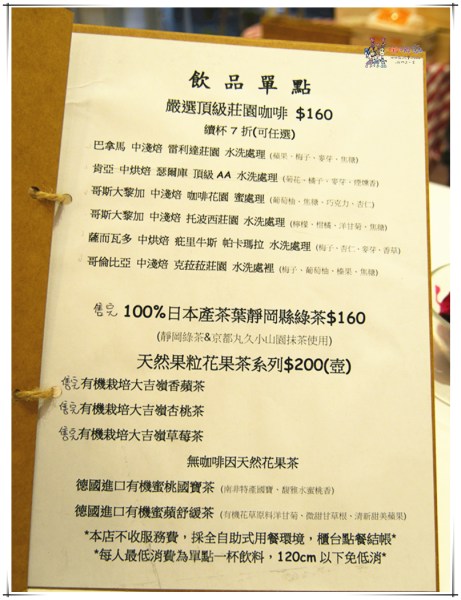 飲品單點
嚴選頂級莊園咖啡 $160
續杯 7 折(可任選)
巴拿馬 中淺焙 雷利達莊園 水洗處理 (蘋果、梅子、麥芽、焦糖)
肯亞 中烘焙 瑟爾庫 頂級 AA 水洗處理 (菊花、橘子、麥芽、煙燻香)
哥斯大黎加 中淺焙 咖啡花園 蜜處理 (葡萄柚、焦糖、巧克力、杏仁)
哥斯大黎加 中淺焙 托波西莊園 水洗處理 (檸檬、柑橘、洋甘菊、焦糖)
薩而瓦多 中烘焙 疵里牛斯 帕卡瑪拉 水洗處理 (梅子、杏仁、麥芽、香草)
哥倫比亞 中淺焙 克菈菈莊園 水洗處裡 (梅子、葡萄柚、榛果、焦糖)
售完 100%日本產茶葉靜岡縣綠茶$160
(靜岡綠茶&京都丸久小山園抹茶使用)
天然果粒花果茶系列$200(壺)
售完有機栽培大吉嶺香蘋茶
售完有機栽培大吉嶺杏桃茶
售完有機栽培大吉嶺草莓茶
無咖啡因天然花果茶
德國進口有機蜜桃國寶茶 (南非特產國寶、馥雅水蜜桃香)
德國進口有機蜜蘋舒緩茶 (有機花草原料洋甘菊、微甜甘草根、清新甜美蘋果)
*本店不收服務費，採全自助式用餐環境，櫃台點餐結帳*
*每人最低消費為單點一杯飲料，120cm 以下免低消*